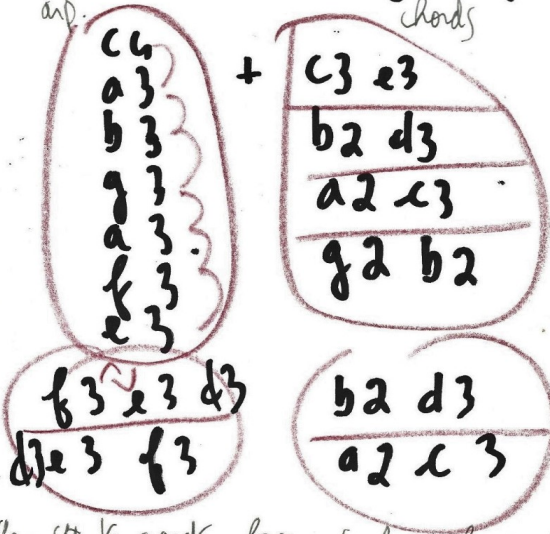 arp.
chords
c4
a3
b3
g3
a3
f3
e3
+
c3 e3
b2 d3
a2 c3
g2 b2
f3 e3 d3
d3 e3 f3
b2 d3
a2 c3